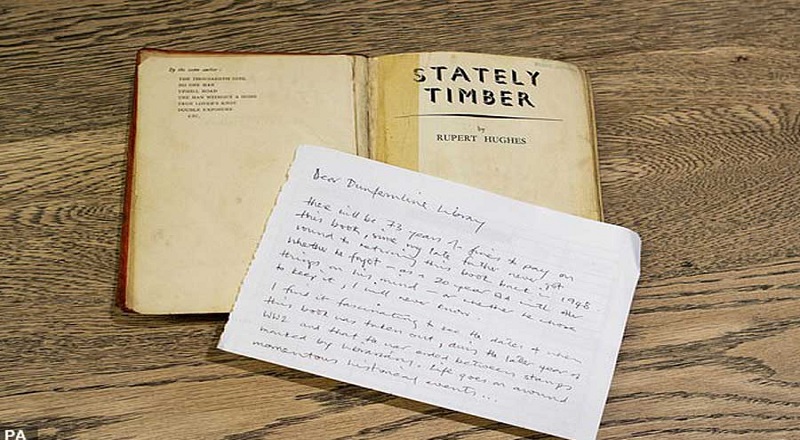 By the same author:
THE THOUSANDTH GIRL
NO ONE MAN
UPHILL ROAD
THE MAN WITHOUT A HOME
TRUE LOVER'S KNOT
DOUBLE EXPOSURE
ETC.
STATELY
TIMBER
by
RUPERT HUGHES
Dear Dunfermline Library
there will be 73 years of fines to pay on
this book, since my late father never got
round to returning this book back in 1948
whether he forgot - as a 20 year old with other
things on his mind - or whether he chose
to keep it, I will never know.
I find it fascinating to see the dates of when
this book was taken out, during the later years of
WW2 and that the war ended between stamps
marked by librarians. Life goes on around
momentous historical events...
PA